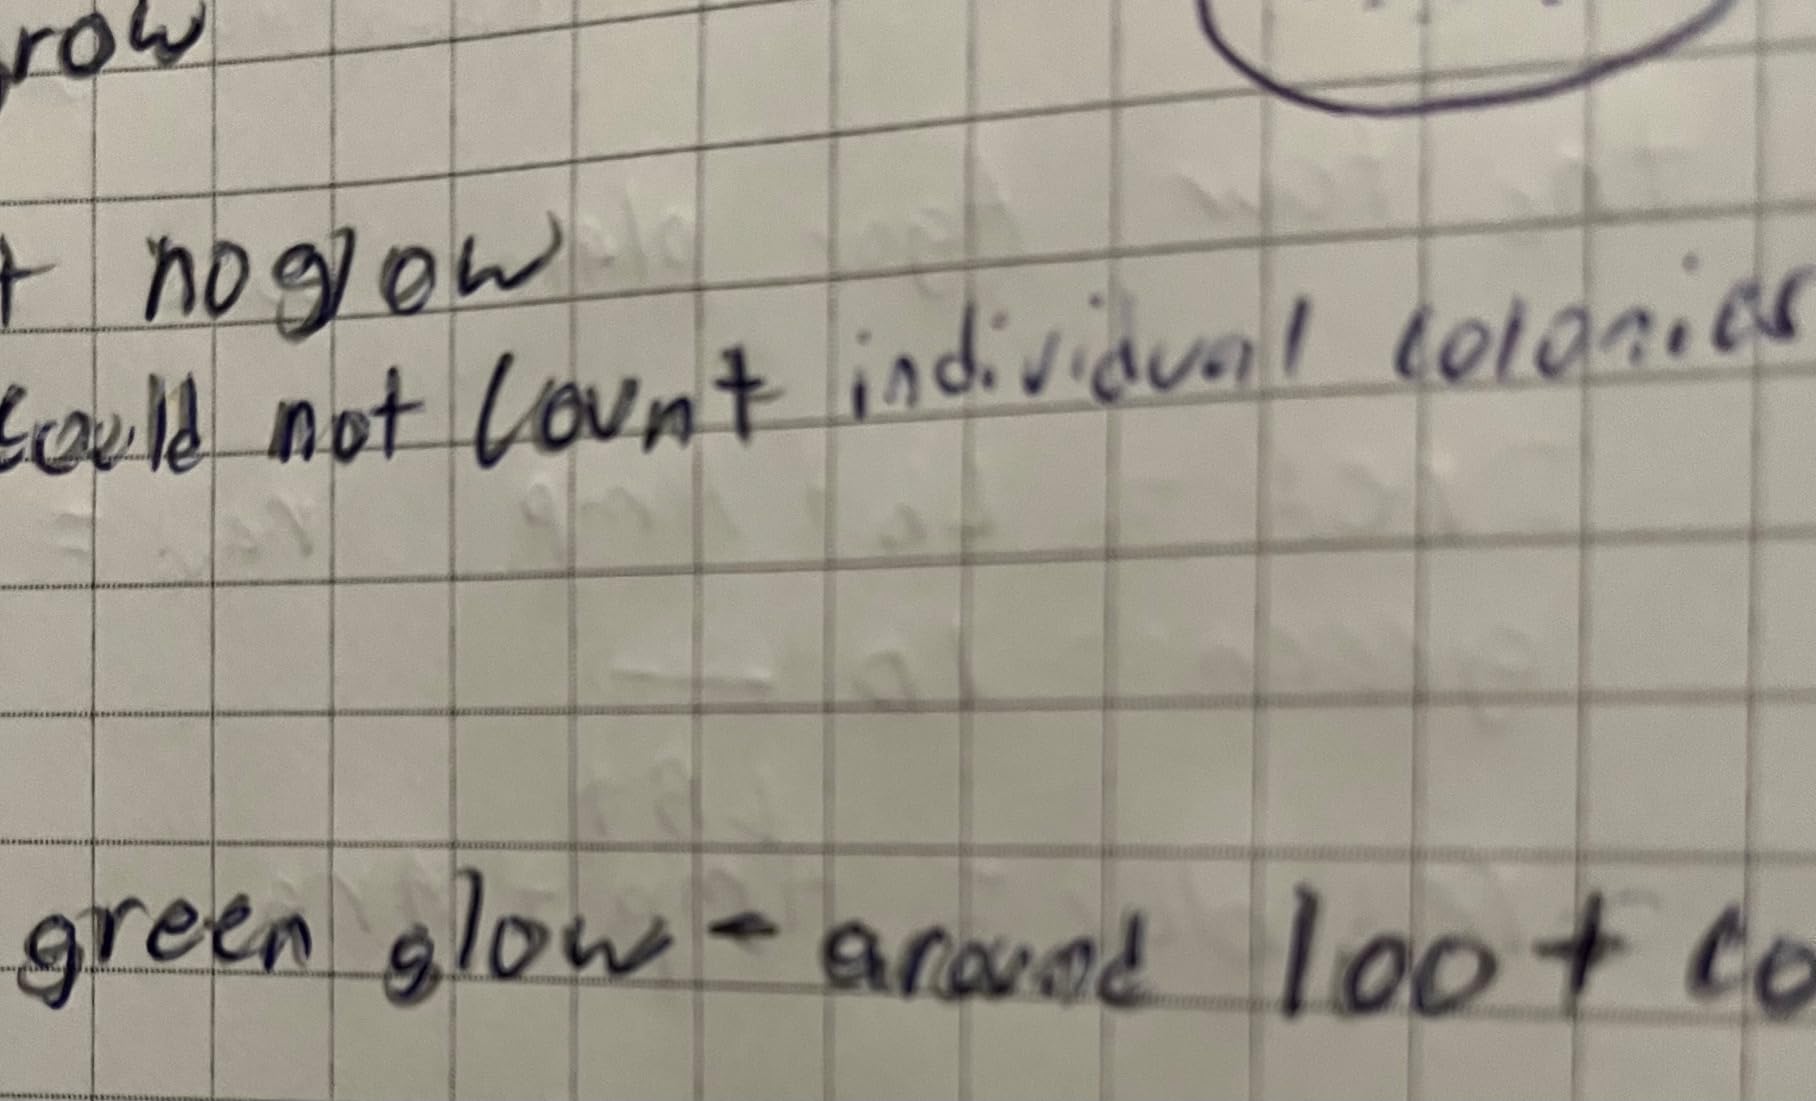 row
+ no glow
could not count individual colonies
green glow - around 100 + co